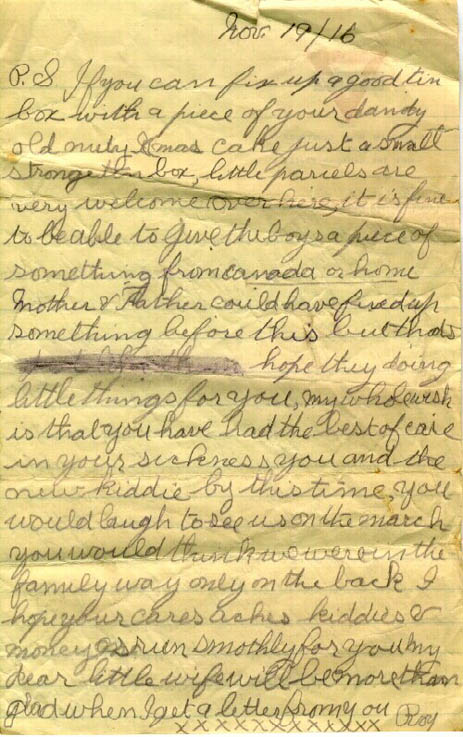 Nov. 19/16
P.S If you can fix up a good tin
box with a piece of your dandy
old nuty Xmas cake just a small
strong thin box, little parcels are
very welcome over here, it is fine
to be able to give the boys a piece of
something from canada or home
Mother & Father could have fixed up
something before this but thats
hope they doing
little things for you, my whole wish
is that you have had the best of care
in your sickness, you and the
new kiddie by this time, you
would laugh to see us on the march
you would think we were in the
family way only on the back I
hope your cares aches kiddies &
money as run smothly for you my
dear little wife will be more than
glad when I get a letter from you Roy
xxxxxxxxxxxx